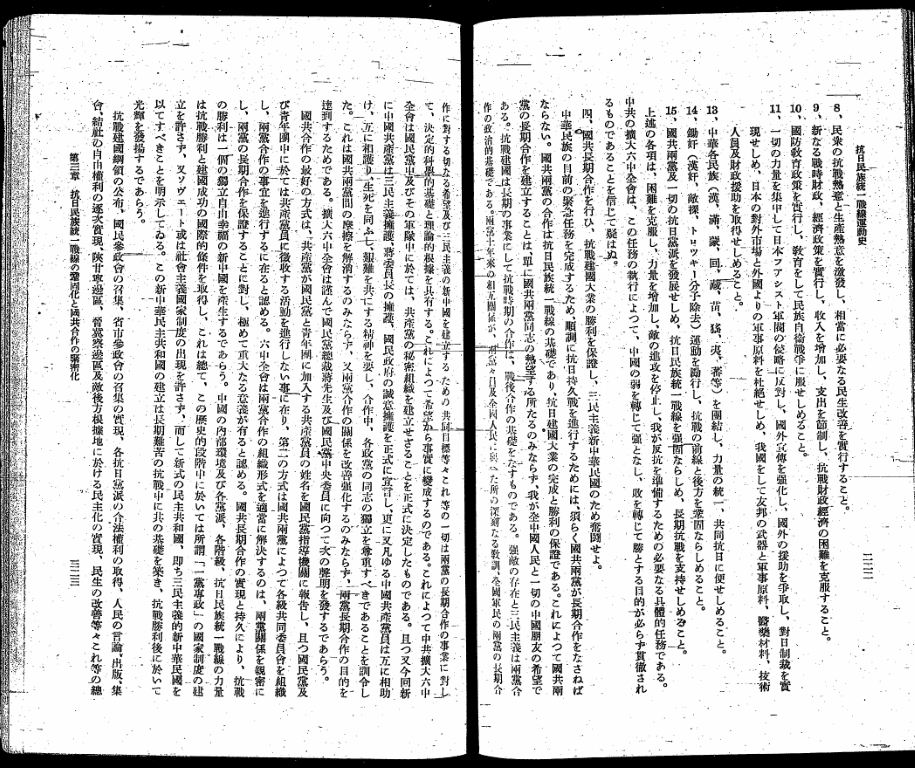 抗日民族統一戰線運動史
二三二
8、民衆の抗戰熱意と生產熱意を激發し、相當に必要なる民生改善を實行すること。
9、新なる戰時財政、經濟政策を實行し、收入を增加し、支出を節制し、抗戰財政經濟の困難を克服すること。
10、國防敎育政策を實行し、敎育をして民族自衞戰爭に服せしめること。
11、一切の力量を集中して日本フアシスト軍閥の侵略に反對し、國外宣傳を强化し、國外の援助を爭取し、對日制裁を實
現せしめ、日本の對外市場と外國よりの軍事原料を杜絕せしめ、我國をして友邦の武器と軍事原料、醫藥材料、技術
人員及財政援助を取得せしめること。
13、中華各民族(漢、滿、蒙、回、藏、苗、猺、夷、番等)を團結し、力量の統一、共同抗日に便せしめること。
14、鋤奸(漢奸、敵探、トロツキー分子除去)運動を勵行し、抗戰の前線と後方を鞏固ならしめること。
15、國共兩黨及一切の抗日黨派を發展せしめ、抗日民族統一戰線を强固ならしめ、長期抗戰を支持せしめること。
上述の各項は、困難を克服し、力量を增加し、敵の進攻を停止し、我が反抗を準備するための必要なる具體的任務である。
中共の擴大六中全會は、この任務の執行によつて、中國の弱を轉じて强となし、敗を轉じて勝とする目的が必らず貫徹され
るものであることを信じて疑はぬ。
四、國共長期合作を行ひ、抗戰建國大業の勝利を保證し、三民主義新中華民國のため奮鬪せよ。
中華民族の目前の緊急任務を完成するため、順調に抗日持久戰を進行するためには、須らく國共兩黨が長期合作をなさねば
ならない。國共兩黨の合作は抗日民族統一戰線の基礎であり、抗日建國大業の完成と勝利の保證である。これによつて國共兩
黨の長期合作を建立することは、單に國共兩黨同志の熱望する所たるのみならず、我が全中國人民と一切の中國朋友の希望で
ある。抗戰建國は長期の事業にして抗戰時期の合作は、戰後合作の基礎をなすものである。强敵の存在と三民主義は兩黨合
作の政治的基礎である。兩黨十七年來の相互關係が、
作に對する切なる希望及び三民主義の新中國を建立するための共同目標等々これ等の一切は兩黨の長期合作の事業に對し
て、決定的科學的基礎と理論的根據を共有する。これによつて希望から事實に變成するのである。これによつて中共擴大六中
全會は國民黨中及びその軍隊中に於ては、共產黨の秘密組織を建立せざることを正式に決定したものである。且つ又今回新
に中國共產黨は三民主義擁護、蔣委員長の擁護、國民政府の誠意擁護を正式に宣言し、更に又凡ゆる中國共產黨員は互に相助
け、互に相護り、生死を同ふし、艱難を共にする精神を要し、合作中、各政黨の同志の獨立を尊重すべきであることを訓令し
た。これは國共兩黨間の摩擦を解消するのみならず、又兩黨合作の關係を改善强化するのみならず、兩黨長期合作の目的を
達到するためである。擴大六中全會は謹んで國民黨總裁蔣先生及び國民黨中央委員に向つて次の聲明を發するであらう。
國共合作の最好の方式は、共產黨が國民黨と靑年團に加入する共產黨員の姓名を國民黨指導機關に報告し、且つ國民黨及
び靑年團中に於ては共產黨員に徵收する活動を進行しない事に在り、第二の方式は國共兩黨によつて各級共同委員會を組織
し、兩黨合作の事宜を進行するに在ると認める。六中全會は兩黨合作の組織形式を適當に解決するのは、兩黨關係を親密に
し、兩黨の長期合作を保證することに對し、極めて重大なる意義が存ると認める。國共長期合作の實現と持久により、抗戰
の勝利は一個の獨立自由幸福の新中國を產生するであらう。中國の內部環境及び各黨派、各階級、抗日民族統一戰線の力量
は抗戰勝利と建國成功の國際的條件を取得し、これは總て、この歷史的段階中に於いては所謂「一黨專政」の國家制度の建
立を許さず、又ソヴエート或は社會主義國家制度の出現を許さず、而して新式の民主共和國、卽ち三民主義的新中華民國を
以てすべきことを明示してゐる。この新中華民主共和國の建立は長期艱苦の抗戰中に其の基礎を築き、抗戰勝利後に於いて
光輝を發揚するであらう。
抗戰建國綱領の公布、國民參政會の召集、省市參政會の召集の實現、各抗日黨派の合法權利の取得、人民の言論、出版、集
會、結社の自由權利の逐次實現、陝甘寧邊區、晉冀察邊區及敵後方根據地に於ける民主化の實現、民生の改善等々これ等の總
第三章 抗日民族統一戰線の鞏固化と國共合作の緊密化
二三三